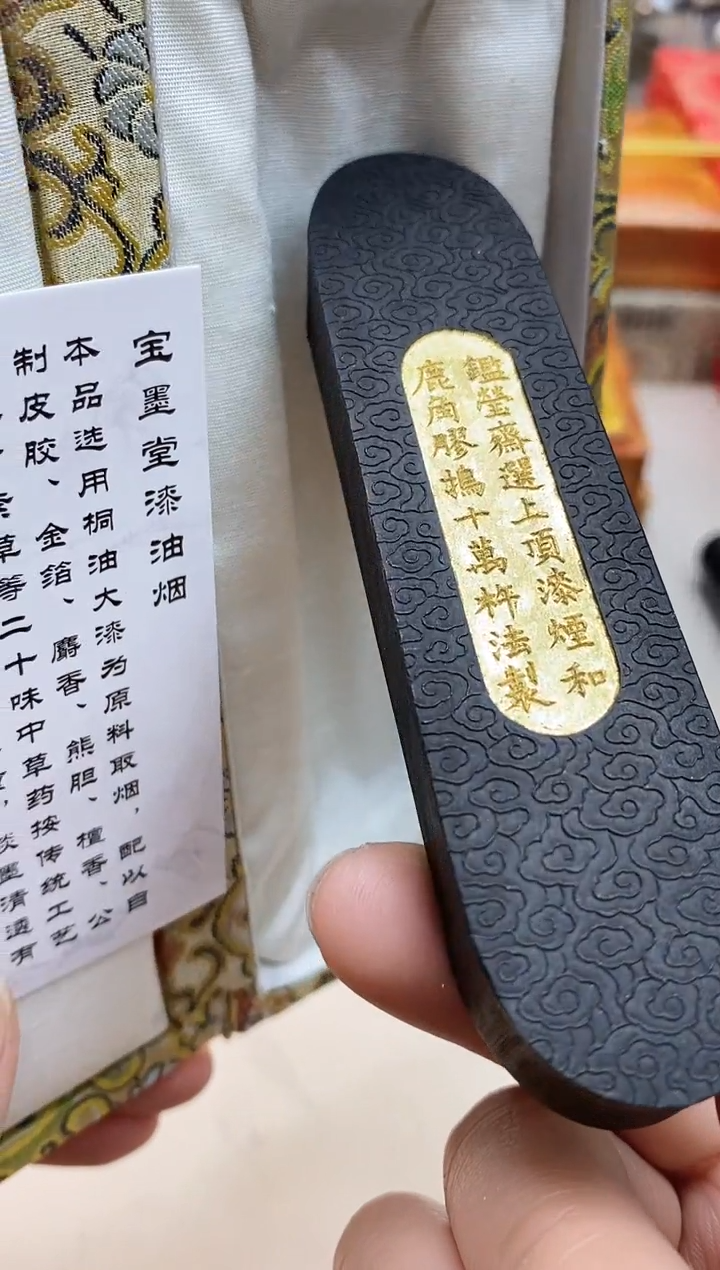 鑑瑩齋選上頂漆煙和
鹿角膠搗十萬杵法製
宝墨堂漆油烟
本品选用桐油大漆为原料取烟，配以自
制皮胶、金箔、麝香、熊胆、檀香、公
草等二十味中草药按传统工艺
墨清透有